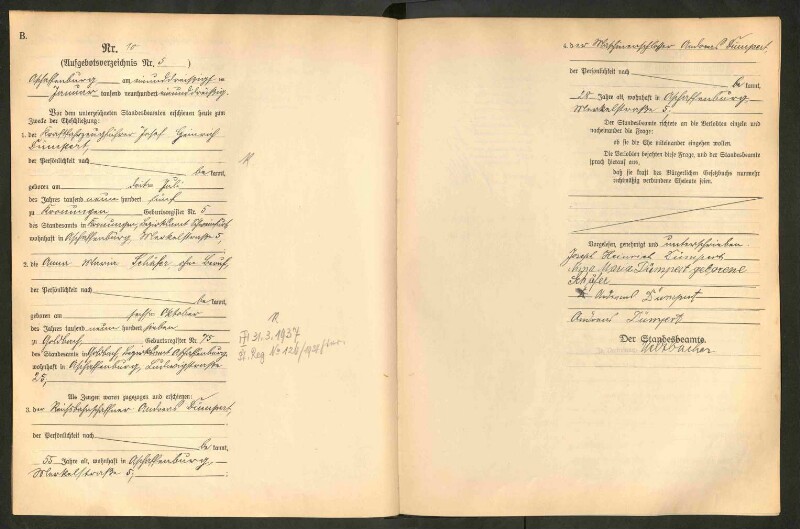 B.
Nr. 10
(Aufgebotsverzeichnis Nr. 5)
Aschaffenburg am einunddreißigsten
Januar tausend neunhundert einunddreißig.
Vor dem unterzeichneten Standesbeamten erschienen heute zum
Zwecke der Eheschließung:
1. der Kraftfahrzeugführer Josef Heinrich
Dümpert,
der Persönlichkeit nach
be kannt,
geboren am dritten Juli
des Jahres tausend neun hundert fünf
zu Kronungen Geburtsregister Nr. 5
des Standesamts in Kronungen, Bezirksamt Schweinfurt
wohnhaft in Aschaffenburg, Merkelstraße 5,
2. die Anna Maria Schäfer ohne Beruf,
der Persönlichkeit nach
be kannt,
geboren am sechsten Oktober
des Jahres tausend neun hundert sieben
zu Goldbach, Geburtsregister Nr. 75
des Standesamts in Goldbach, Bezirksamt Aschaffenburg,
wohnhaft in Aschaffenburg, Ludwigstraße
25,
Als Zeugen waren zugezogen und erschienen:
3. der Reichsbahnschaffner Andreas Dümpert,
der Persönlichkeit nach
be kannt,
55 Jahre alt, wohnhaft in Aschaffenburg
Merkelstraße 5,
31.3.1937
4. der Andreas Dümpert,
der Persönlichkeit nach
be kannt,
28 Jahre alt, wohnhaft in Aschaffenburg
Merkelstraße 5,
Der Standesbeamte richtete an die Verlobten einzeln und
nacheinander die Frage:
ob sie die Ehe miteinander eingehen wollen.
Die Verlobten bejahten diese Frage, und der Standesbeamte
sprach hierauf aus,
daß sie kraft des Bürgerlichen Gesetzbuchs nunmehr
rechtmäßig verbundene Eheleute seien.
Vorgelesen, genehmigt und unterschrieben.
Joseph Heinrich Dümpert
Anna Maria Dümpert geborene
Schäfer
Andreas Dümpert
Andreas Dümpert
Der Standesbeamte.